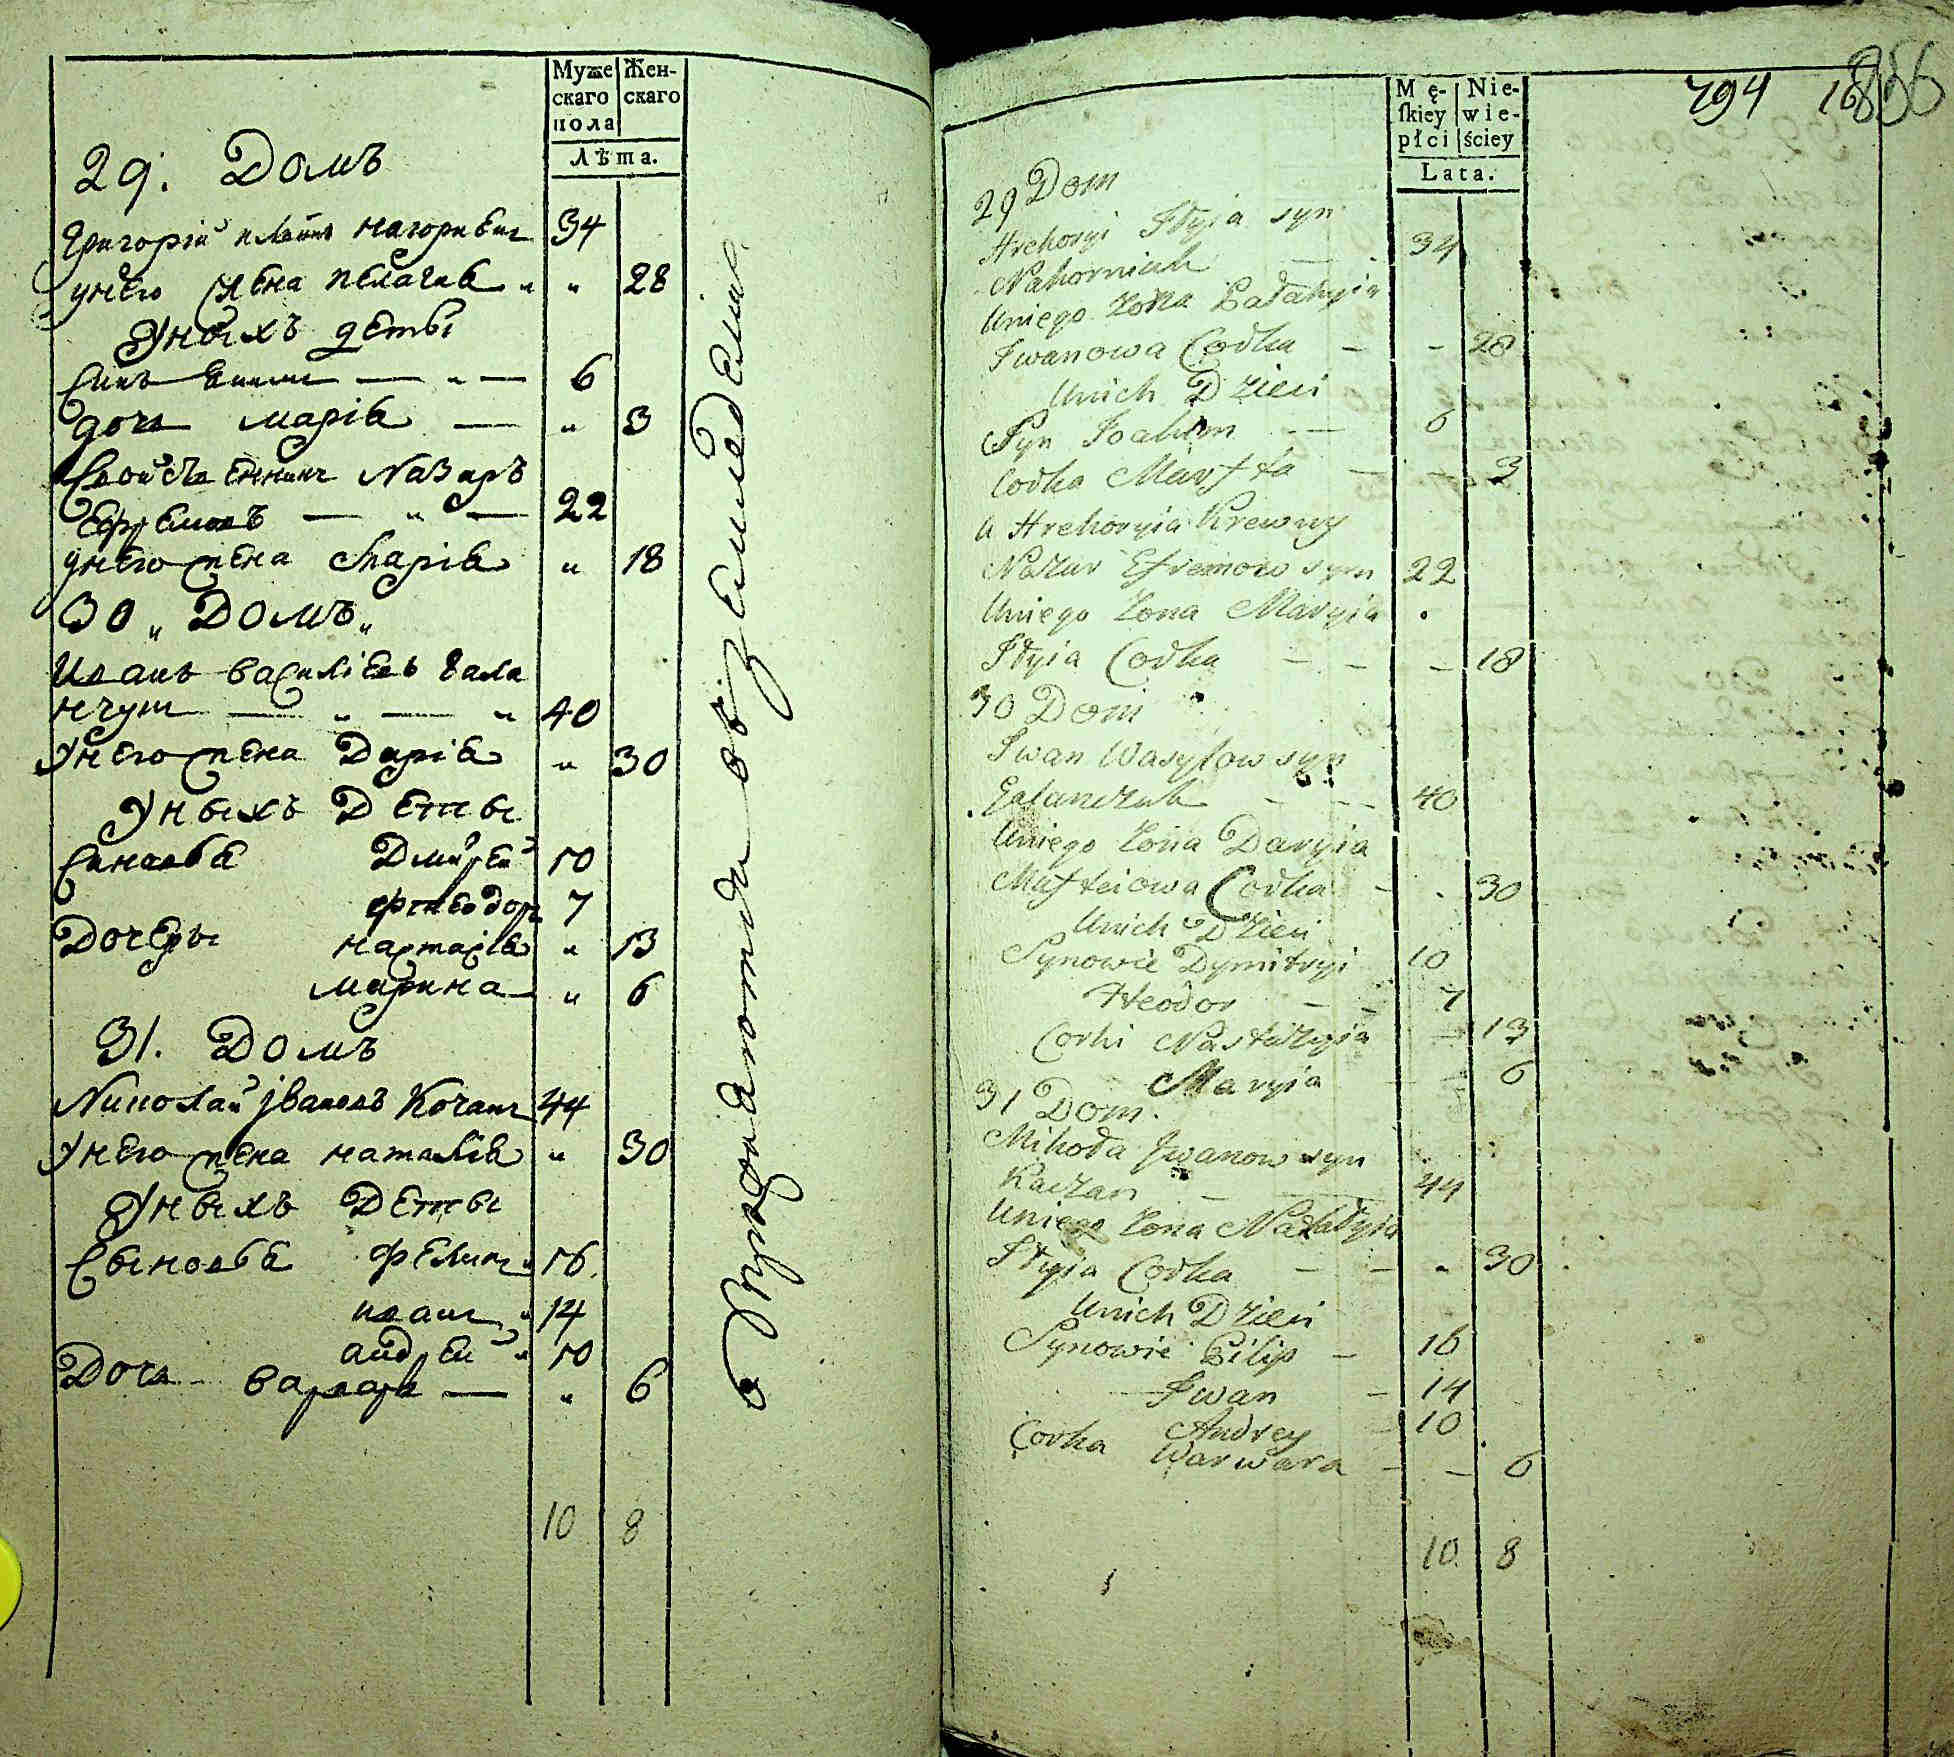 Муже Жен-
скаго скаго
пола
Лѣта.
29. Домъ
Григорій Нагорныи 34
унего жена Пелагия " " 28
Уныхъ деты
Сынъ — " — 6
дочь Мария — " 3
Свойственникъ Назаръ
Ефремовъ — " — 22
унего жена Мария " 18
30 " Домъ "
Иванъ Василіевъ Гала
нчукъ — " — " 40
Унего жена Дария " 30
Уныхъ Деты
Синовья Дмитрей 10
Фтеодоръ 7
Дочеры Настасія " 13
Марина — " 6
31. Домъ
Николай Івановъ Кочанъ 44
Унего жена Наталія " 30
Уныхъ Деты
Сыновья Филипъ " 16.
Иванъ " 14
Андрей " 10
Дочь Варвара — " 6
10 8
Mę- Nie-
ſkiey wie-
płci ściey
Lata.
794 16
856
29 Dom
Hrehoryi Jłyia syn
Nahorniuk — 34
Uniego Zona Pałahyia
Jwanowa Codka — — 28
Unich Dzieci
Syn Joahim — — 6
Codka Marfta — — 3
U Hrehoryia Krewny
Nazar Efremow syn 22
Uniego Zona Maryia .
Jłyia Codka — — — 18
30 Dom
Jwan Wasyłow syn
Gałanczuk — — — 40
Uniego Zona Daryia
Matfteiowa Codka — . 30
Unich Dzieci
Synowie Dymitryi 10
Fteodor — — 7
Corki Nastazyia — 13
Maryia 6
31 Dom.
Mikoła Jwanow syn
Kaczan — 44
Uniego Zona Natałyia
Jłyia Codka — — " 30
Unich Dzieci
Synowie Pilip — 16
Jwan — 14
Andrey 10
Corka Warwara — — 6
10 8